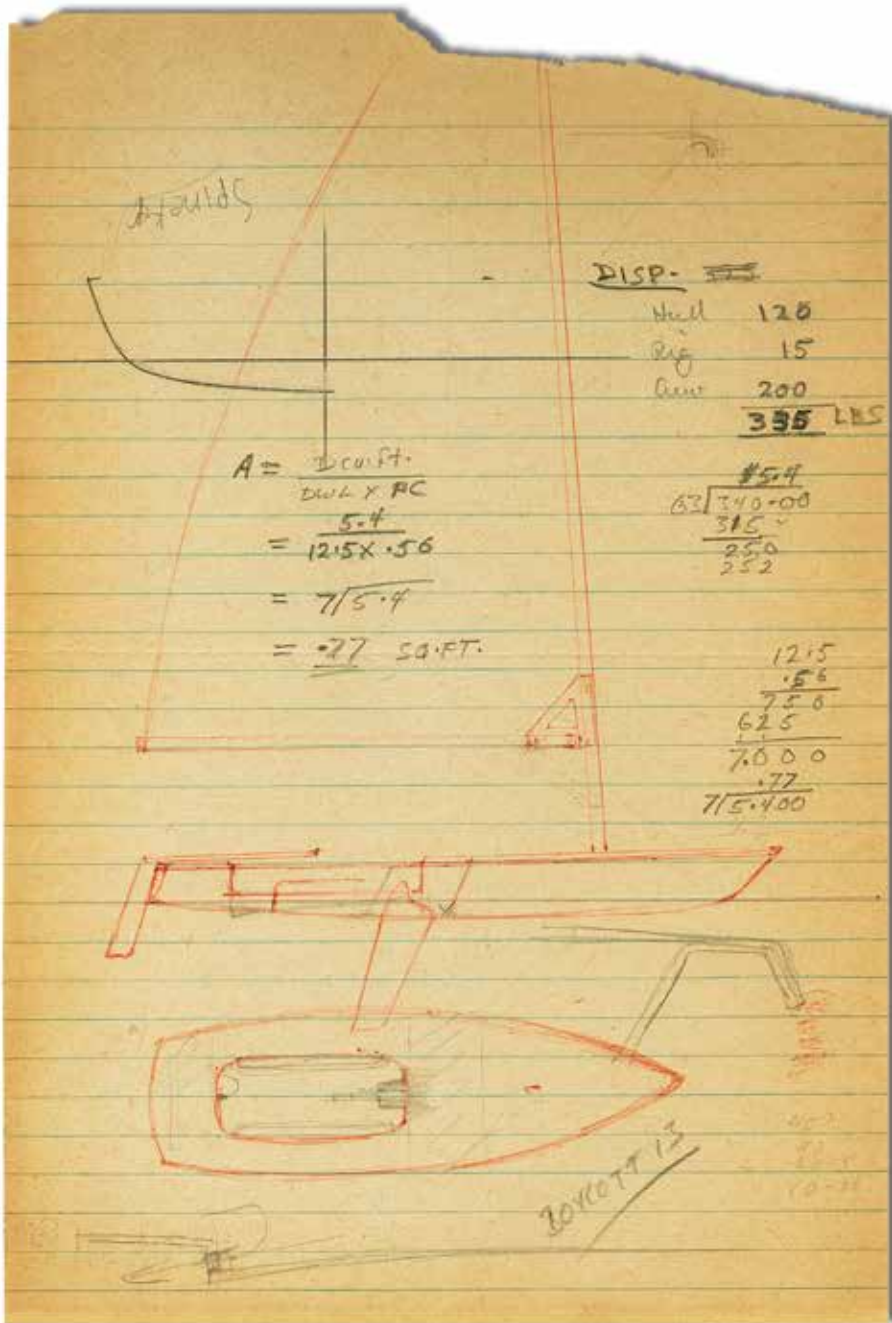 DISP.
Hull 120
Rig 15
Crew 200
335 LBS
A = D cu.ft.
DWL X PC
= 5.4
12.5 X .56
= 7/5.4
= .77 SQ.FT.
5.4
63/340.00
315
250
252
12.5
.56
750
625
7.000
.77
7/5.400
BOYCOTT 13